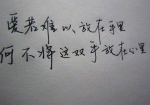 爱若难以放在手里
何不将这双手放在心里